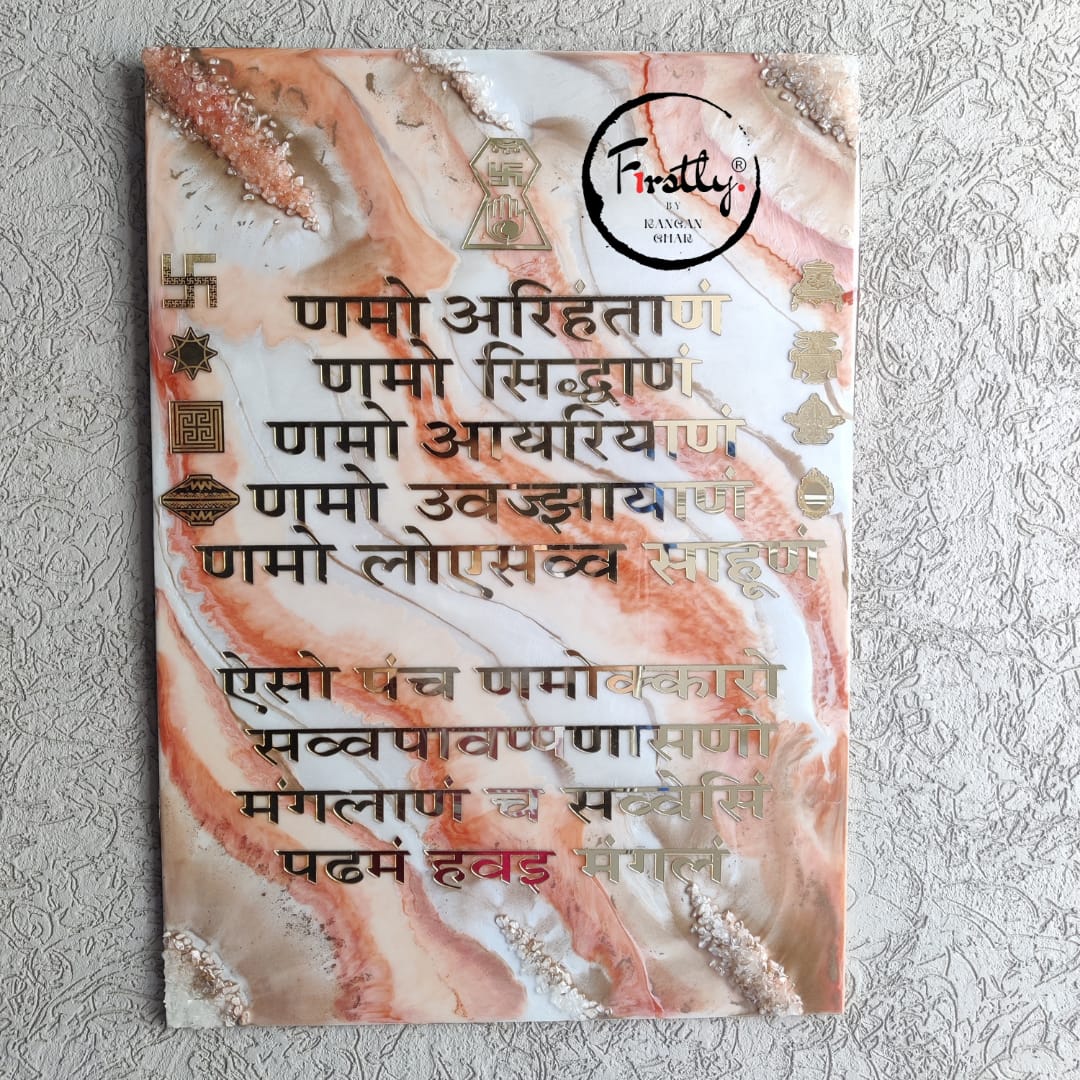 Firstly.®
BY
RANGAN
GHAR
णमो अरिहंताणं
णमो सिद्धाणं
णमो आयरियाणं
णमो उवज्झायाणं
णमो लोएसव्व साहूणं
ऐसो पंच णमोक्कारो
सव्वपावप्पणासणो
मंगलाणं च सव्वेसिं
पढमं हवइ मंगलं